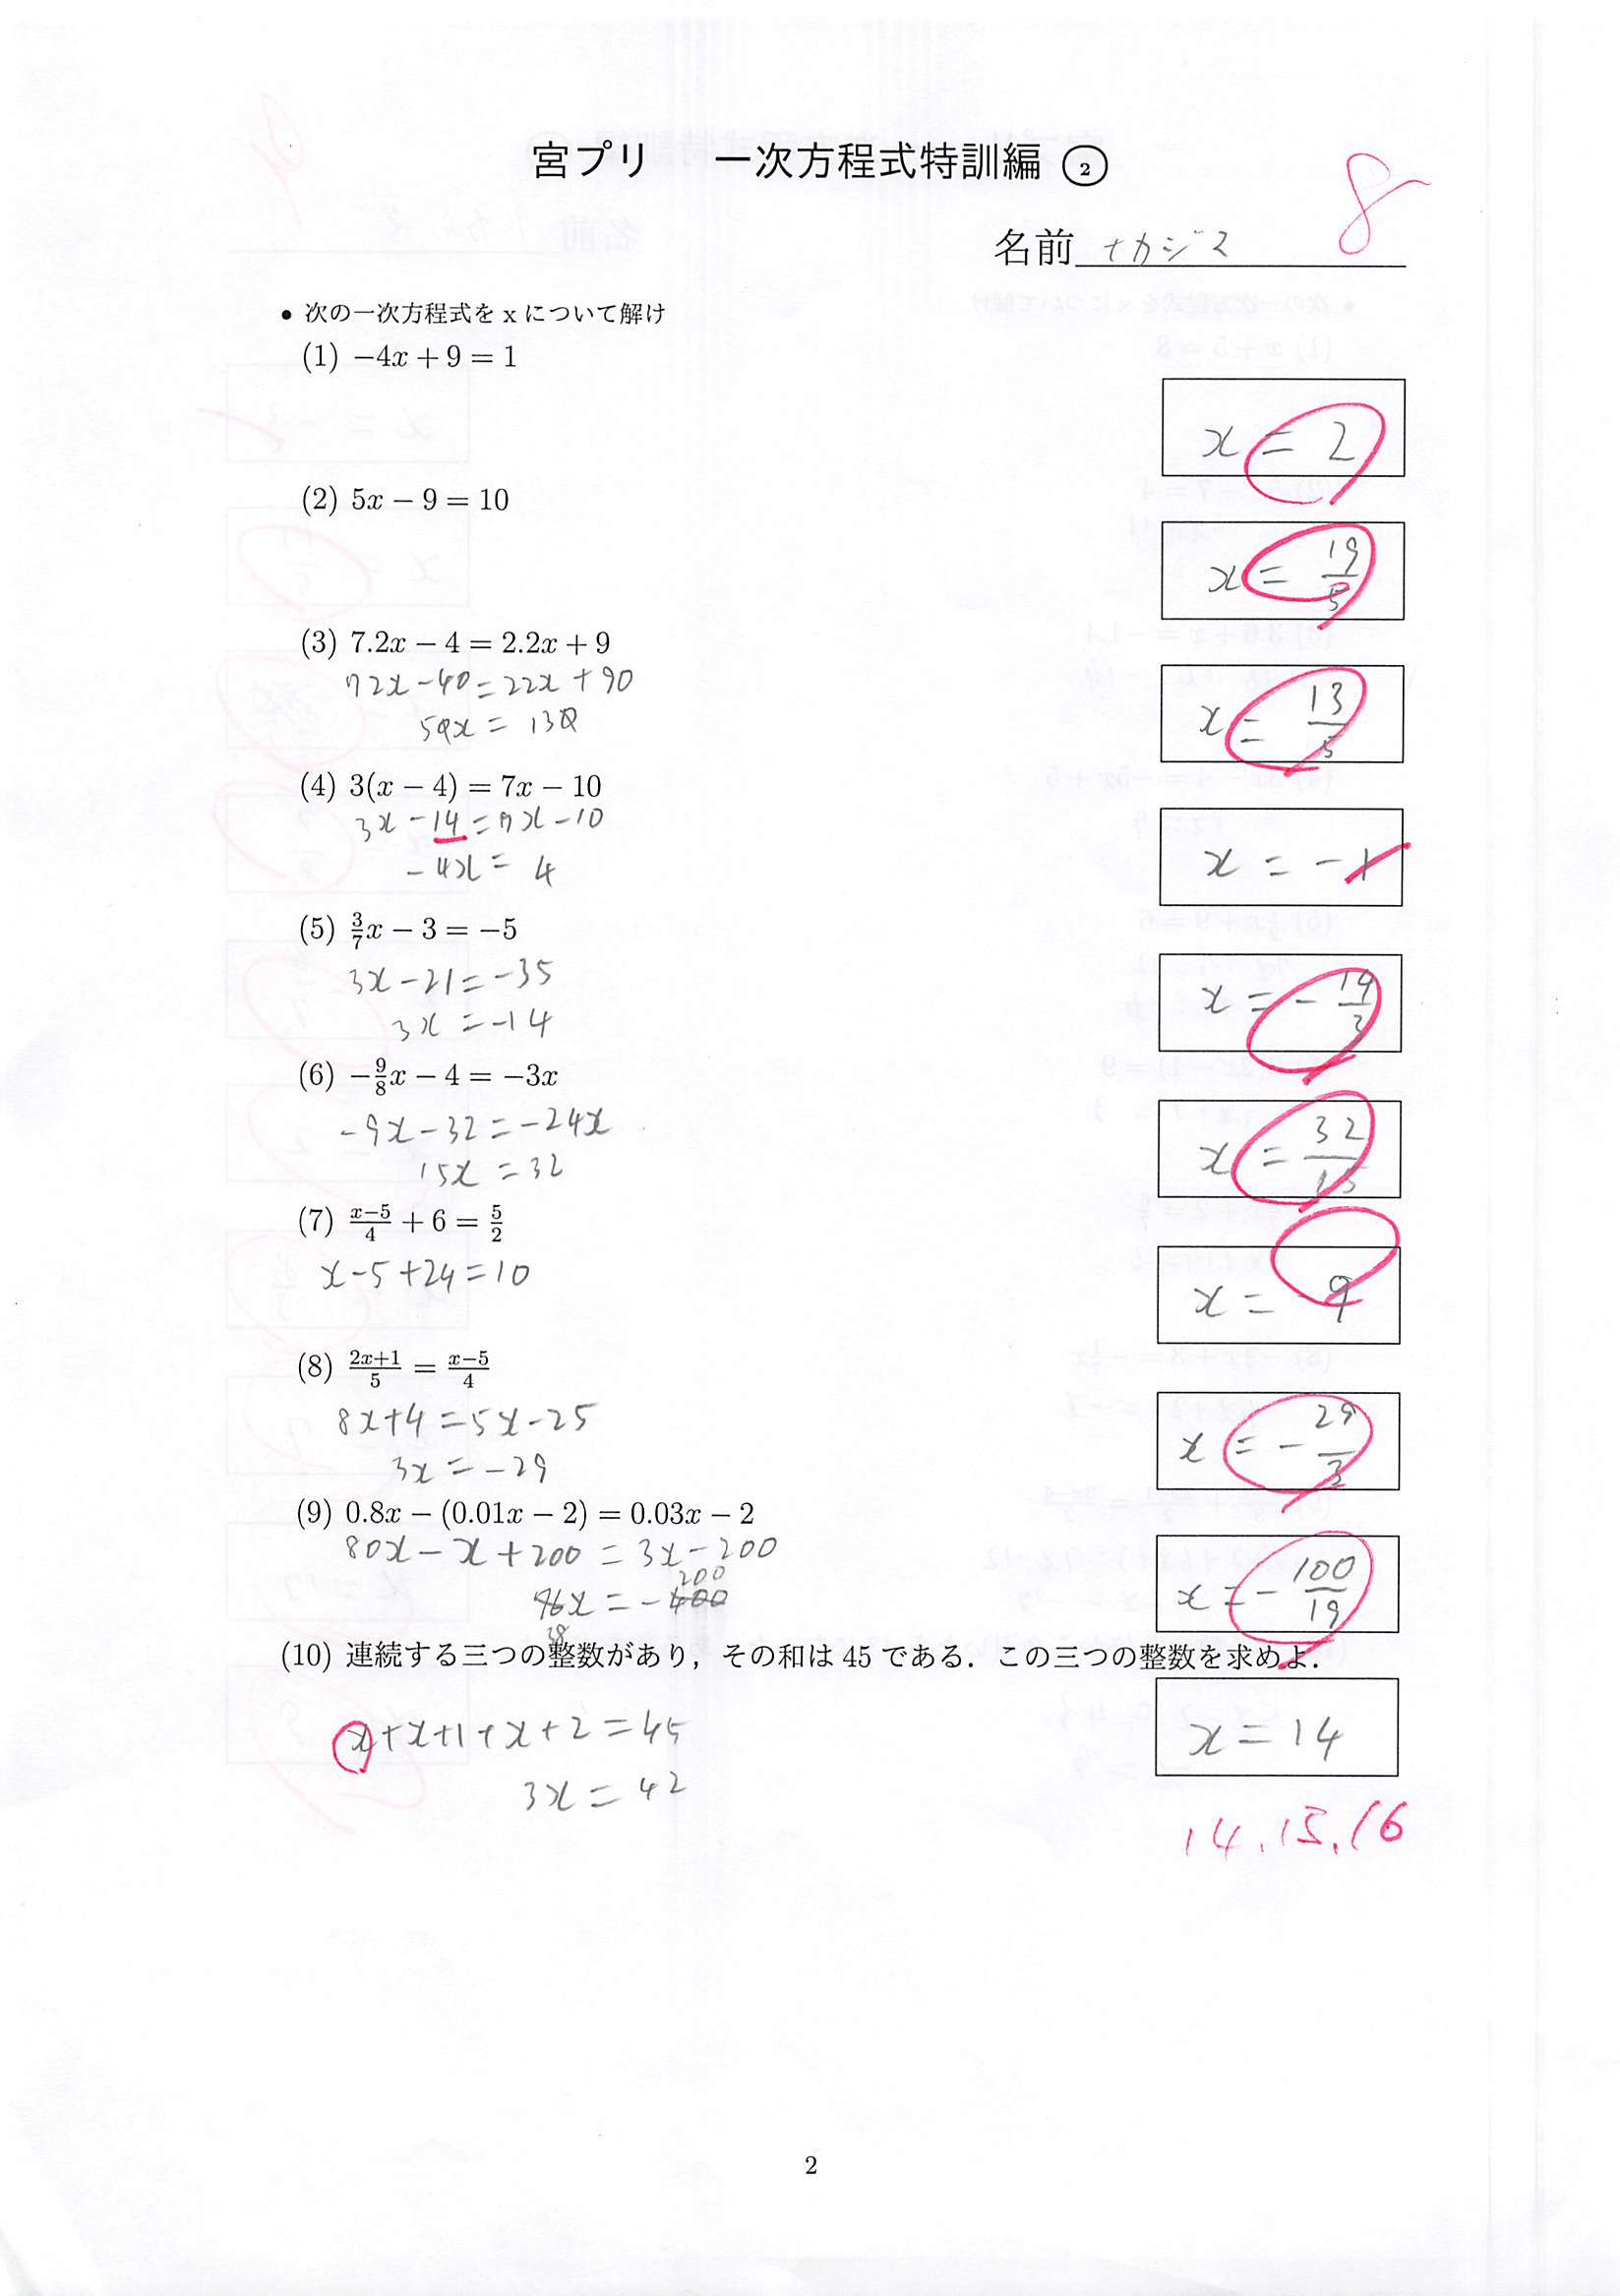 宮プリ 一次方程式特訓編 ②
8
名前 ナカジマ
• 次の一次方程式を x について解け
(1) −4x + 9 = 1
x = 2
(2) 5x − 9 = 10
x = 19/5
(3) 7.2x − 4 = 2.2x + 9
72x−40=22x+90
50x = 130
x = 13/5
(4) 3(x − 4) = 7x − 10
3x−14=7x−10
−4x = 4
x = −1
(5) 3/7x − 3 = −5
3x−21=−35
3x=−14
x = − 14/3
(6) −9/8x − 4 = −3x
−9x−32=−24x
15x=32
x = 32/15
(7) x−5/4 + 6 = 5/2
x−5+24=10
x = −9
(8) 2x+1/5 = x−5/4
8x+4=5x−25
3x=−29
x = − 29/3
(9) 0.8x − (0.01x − 2) = 0.03x − 2
80x−x+200 = 3x−200
200
76x = −400
38
x = − 100/19
(10) 連続する三つの整数があり，その和は 45 である．この三つの整数を求めよ．
x+x+1+x+2=45
3x = 42
x=14
14.15.16
2